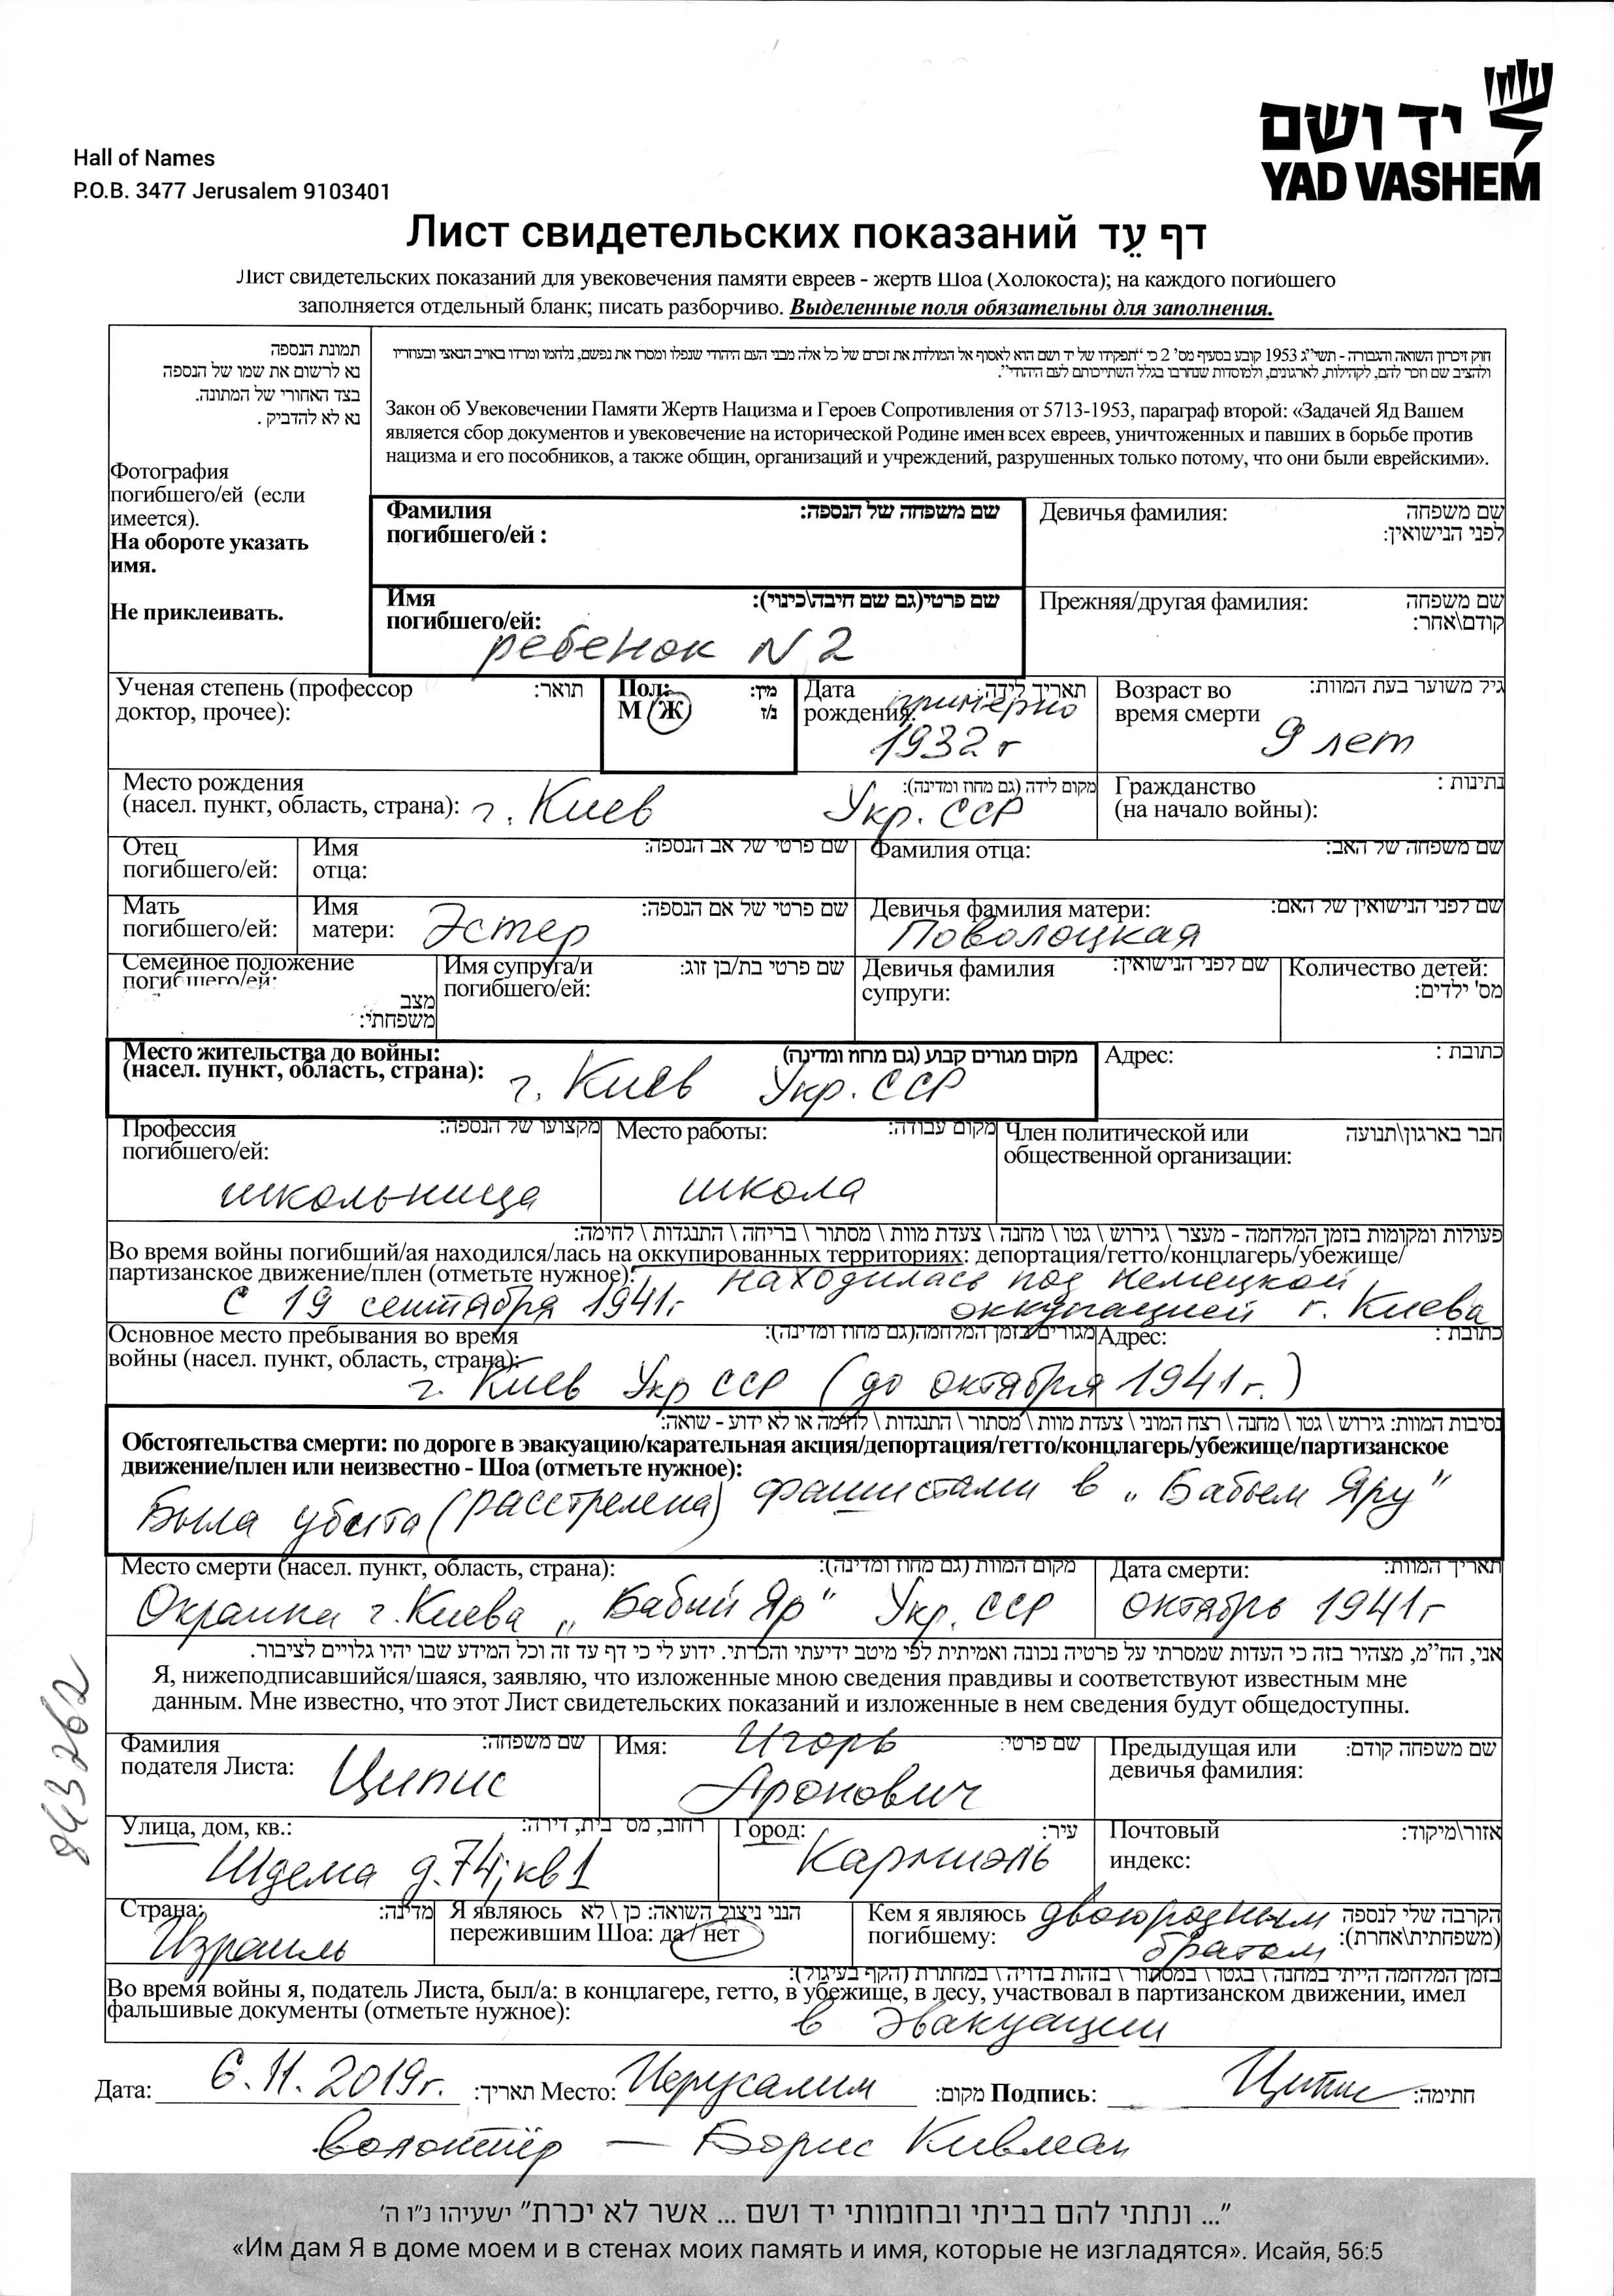 יד ושם
YAD VASHEM
Hall of Names
P.O.B. 3477 Jerusalem 9103401
Лист свидетельских показаний דף עֵד
Лист свидетельских показаний для увековечения памяти евреев - жертв Шоа (Холокоста); на каждого погибшего
заполняется отдельный бланк; писать разборчиво. Выделенные поля обязательны для заполнения.
תמונת הנספה
נא לרשום את שמו של הנספה
בצד האחורי של המתונה.
נא לא להדביק .
Фотография
погибшего/ей (если
имеется).
На обороте указать
имя.
Не приклеивать.
חוק זיכרון השואה והגבורה - תשי״ג 1953 קובע בסעיף מס׳ 2 כי ״תפקידו של יד ושם הוא לאסוף אל המולדת את זכרם של כל אלה מבני העם היהודי שנפלו ומסרו את נפשם, נלחמו ומרדו באויב הנאצי ובעוזריו
ולהציב שם וזכר להם, לקהילות, לארגונים, ולמוסדות שנחרבו בגלל השתייכותם לעם היהודי״.
Закон об Увековечении Памяти Жертв Нацизма и Героев Сопротивления от 5713-1953, параграф второй: «Задачей Яд Вашем
является сбор документов и увековечение на исторической Родине имен всех евреев, уничтоженных и павших в борьбе против
нацизма и его пособников, а также общин, организаций и учреждений, разрушенных только потому, что они были еврейскими».
Фамилия שם משפחה של הנספה:
погибшего/ей :
Девичья фамилия: שם משפחה
לפני הנישואין:
Имя שם פרטי(גם שם חיבה\כינוי):
погибшего/ей:
ребенок N 2
Прежняя/другая фамилия: שם משפחה
קודם\אחר:
Ученая степень (профессор תואר:
доктор, прочее):
Пол: מין:
М /Ж ז/נ
Дата תאריך לידה:
рождения: примерно
1932 г
Возраст во גיל משוער בעת המוות:
время смерти
9 лет
Место рождения מקום לידה (גם מחוז ומדינה):
(насел. пункт, область, страна): г. Киев Укр. ССР
Гражданство נתינות :
(на начало войны):
Отец
погибшего/ей:
Имя שם פרטי של אב הנספה:
отца:
Фамилия отца: שם משפחה של האב:
Мать
погибшего/ей:
Имя שם פרטי של אם הנספה:
матери: Эстер
Девичья фамилия матери: שם לפני הנישואין של האם:
Поволоцкая
Семейное положение
погибшего/ей:
מצב
משפחתי:
Имя супруга/и שם פרטי בת/בן זוג:
погибшего/ей:
Девичья фамилия שם לפני הנישואין:
супруги:
Количество детей:
מס' ילדים:
Место жительства до войны: מקום מגורים קבוע (גם מחוז ומדינה)
(насел. пункт, область, страна): г. Киев Укр. ССР
Адрес: כתובת :
Профессия מקצועו של הנספה:
погибшего/ей:
школьница
Место работы: מקום עבודה:
школа
Член политической или חבר בארגון\תנועה
общественной организации:
פעולות ומקומות בזמן המלחמה - מעצר \ גירוש \ גטו \ מחנה \ צעדת מוות \ מסתור \ בריחה \ התנגדות \ לחימה:
Во время войны погибший/ая находился/лась на оккупированных территориях: депортация/гетто/концлагерь/убежище/
партизанское движение/плен (отметьте нужное): находилась под немецкой
с 19 сентября 1941г оккупацией г. Киева
Основное место пребывания во время מגורים בזמן המלחמה(גם מחוז ומדינה):
войны (насел. пункт, область, страна):
Адрес: כתובת :
г. Киев Укр ССР (до октября 1941 г.)
נסיבות המוות: גירוש \ גטו \ מחנה \ רצח המוני \ צעדת מוות \ מסתור \ התנגדות \ לחימה או לא ידוע - שואה:
Обстоятельства смерти: по дороге в эвакуацию/карательная акция/депортация/гетто/концлагерь/убежище/партизанское
движение/плен или неизвестно - Шоа (отметьте нужное):
Была убита (расстрелена) фашистами в „Бабьем Яру"
Место смерти (насел. пункт, область, страна): מקום המוות (גם מחוז ומדינה):
Окраина г. Киева „Бабий Яр" Укр. ССР
Дата смерти: תאריך המוות:
октябрь 1941 г
אני, הח״מ, מצהיר בזה כי העדות שמסרתי על פרטיה נכונה ואמיתית לפי מיטב ידיעתי והכרתי. ידוע לי כי דף עד זה וכל המידע שבו יהיו גלויים לציבור.
Я, нижеподписавшийся/шаяся, заявляю, что изложенные мною сведения правдивы и соответствуют известным мне
данным. Мне известно, что этот Лист свидетельских показаний и изложенные в нем сведения будут общедоступны.
843262
Фамилия שם משפחה:
подателя Листа: Ципис
Имя: שם פרטי:
Игорь
Аронович
Предыдущая или שם משפחה קודם:
девичья фамилия:
Улица, дом, кв.: רחוב, מס' בית, דירה:
Шдема д.74, кв1
Город: עיר:
Кармиэль
Почтовый אזור\מיקוד:
индекс:
Страна: מדינה:
Израиль
Я являюсь הנני ניצול השואה: כן \ לא
пережившим Шоа: да / нет
Кем я являюсь הקרבה שלי לנספה
погибшему: (משפחתית\אחרת):
двоюродным
братом
בזמן המלחמה הייתי במחנה \ בגטו \ במסתור \ בזהות בדויה \ במחתרת (הקף בעיגול):
Во время войны я, податель Листа, был/а: в концлагере, гетто, в убежище, в лесу, участвовал в партизанском движении, имел
фальшивые документы (отметьте нужное): в эвакуации
Дата: 6.11.2019г. תאריך: Место: Иерусалим מקום: Подпись: Ципис חתימה:
волонтёр — Борис Кивман
״... ונתתי להם בביתי ובחומותי יד ושם ... אשר לא יכרת״ ישעיהו נ״ו ה׳
«Им дам Я в доме моем и в стенах моих память и имя, которые не изгладятся». Исайя, 56:5